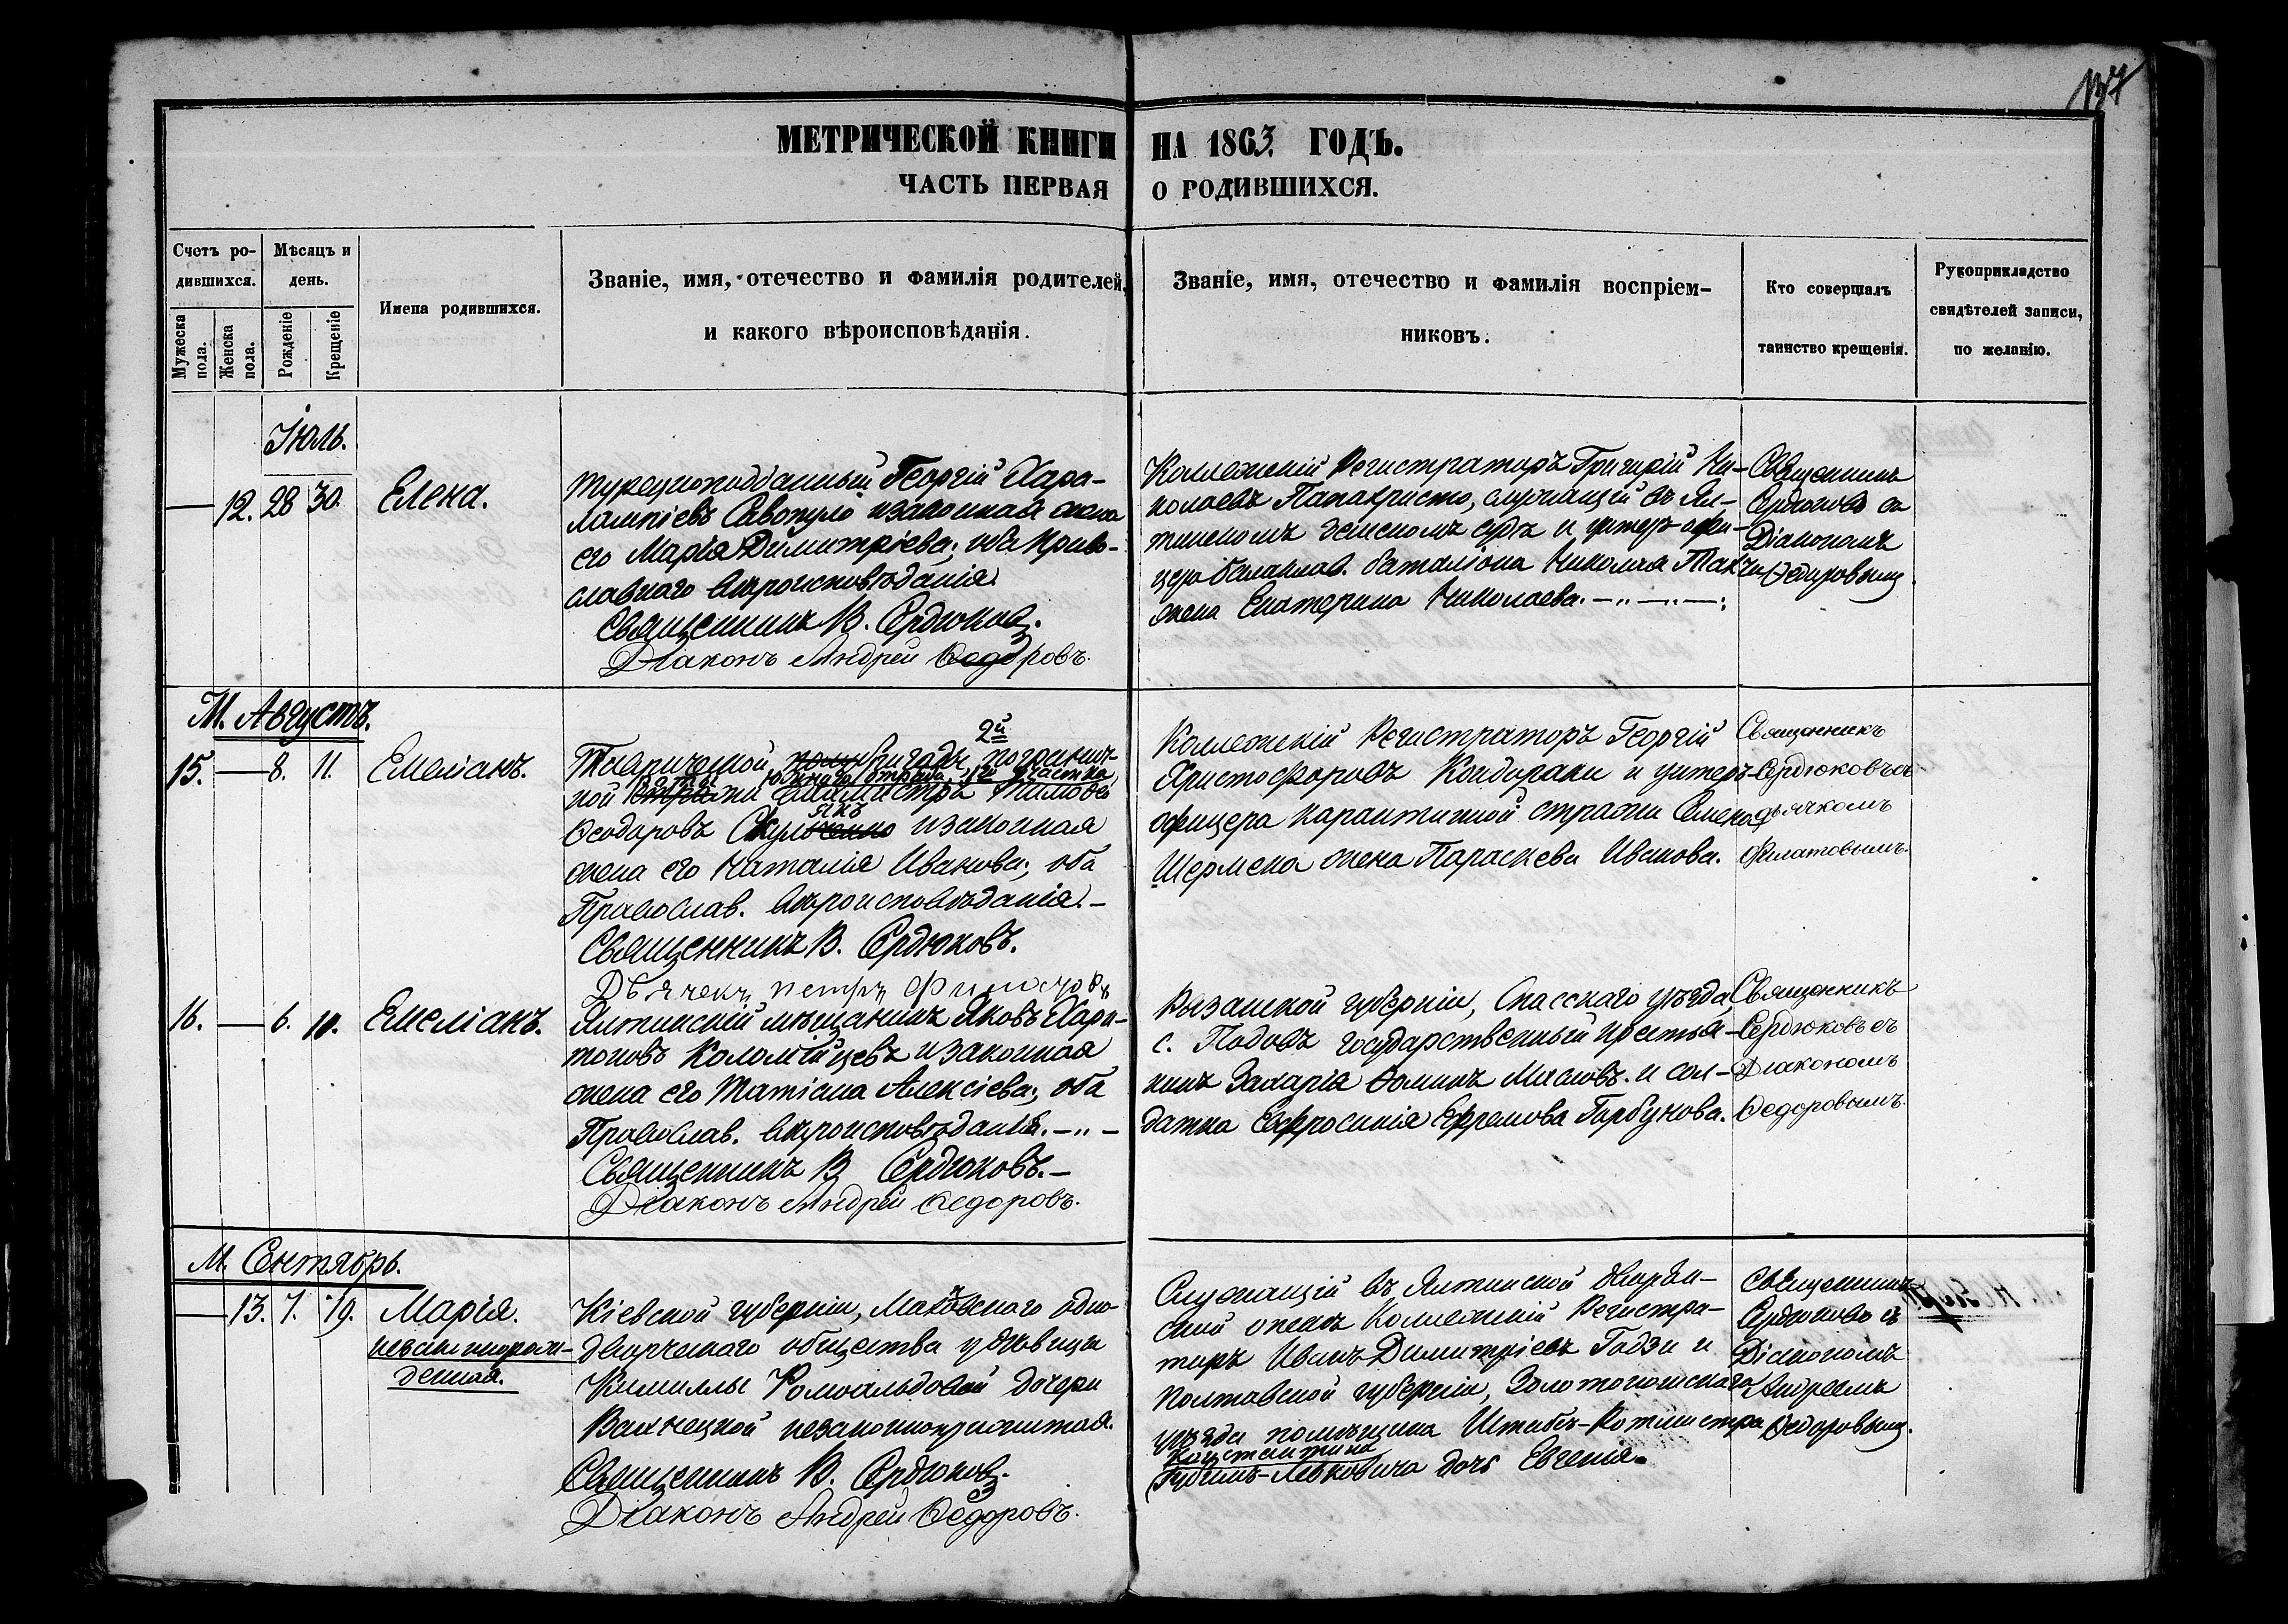 137
МЕТРИЧЕСКОЙ КНИГИ НА 1863. ГОДЪ.
ЧАСТЬ ПЕРВАЯ О РОДИВШИХСЯ.
Счетъ ро-
дившихся.
Мужеска
пола.
Женска
пола.
Мѣсяцъ и
день.
Рожденіе
Крещеніе
Имена родившихся.
Званіе, имя, отечество и фамилія родителей,
и какого вѣроисповѣданія.
Званіе, имя, отечество и фамилія воспріем-
никовъ.
Кто совершалъ
таинство крещенія.
Рукоприкладство
свидѣтелей записи,
по желанію.
Іюль.
— 12. 28 30. Елена.
Турецкоподданный Георгій Хара-
лампіевъ Савопуло и законная жена
его Марія Димитріева; оба право-
славнаго вѣроисповѣданія.
Священникъ В. Сердюковъ.
Діаконъ Андрей Ѳедоровъ.
Коллежскій Регистраторъ Григорій Ни-
колаевъ Папахристо, служащій въ Ял-
тинскомъ земскомъ судѣ и унтеръ-офи-
цера балаклав. баталіона Николая
жена Екатерина Николаева.
Священникъ
Сердюковъ съ
Діакономъ
Ѳедоровымъ
М. Августъ.
15. — 8. 11. Емеліанъ.
2й
Таврической бригады погранич-
ной стражи
Ѳеодоровъ и законная
жена его Наталія Иванова; оба
Православ. вѣроисповѣданія. —
Священникъ В. Сердюковъ.
Дьячекъ Петръ Филатовъ
Коллежскій Регистраторъ Георгій
Христофоровъ Кондораки и унтеръ-
офицера карантинной стражи Семена
Шермена жена Параскева Иванова.
Священникъ
Сердюковъ съ
дьячкомъ
Филатовымъ.
16. — 6. 10. Емеліанъ.
Ялтинскій мѣщанинъ Яковъ Хари-
тоновъ Коломійцевъ и законная
жена его Татіана Алексіева; оба
Православ. вѣроисповѣданія.
Священникъ В Сердюковъ. —
Діаконъ Андрей Ѳедоровъ.
Рязанской губерніи, Спасскаго уѣзда,
с. Подовъ государственный крестья-
нинъ Захарія Ѳоминъ Масловъ. и сол-
датка Евфросинія Ефремова Горбунова.
Священникъ
Сердюковъ съ
Діакономъ
Ѳедоровымъ.
М. Сентябрь.
— 13. 7. 19. Марія.
незаконнорож-
денная.
Кіевской губерніи, одно-
дворческаго общества у вдовицы
Камиллы Ромоальдовой дочери
незаконноприжитая.
Священникъ В. Сердюковъ.
Діаконъ Андрей Ѳедоровъ.
Служащій въ Ялтинской дворян-
ской опекѣ Коллежскій Регистра-
торъ Иванъ Димитріевъ Годзи и
Полтавской губерніи, Золотоношскаго
уѣзда помѣщика Штабъ-Ротмистра
Константина
Левковича дочь Евгенія.
Священникъ
Сердюковъ съ
Діакономъ
Андреемъ
Ѳедоровымъ.